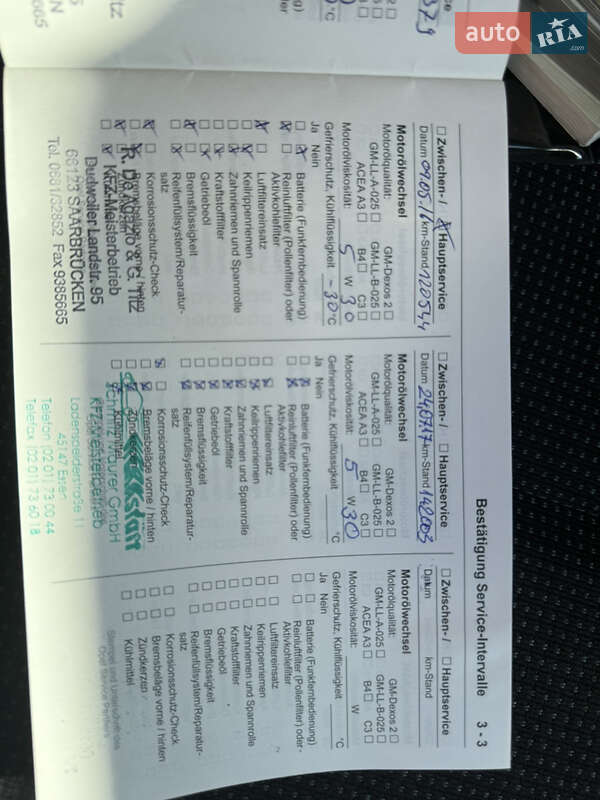 Bestätigung Service-Intervalle 3 - 3
☒ Hauptservice
☐ Zwischen- /
Datum 09.05.16 km-Stand 120544
Motorölwechsel
Motorölqualität: GM-Dexos 2 ☐
GM-LL-A-025 ☐ GM-LL-B-025 ☐
ACEA A3 ☐ B4 ☐ C3 ☐
Motorölviskosität: 5 W 30
Gefrierschutz, Kühlflüssigkeit -30 °C
Ja Nein
Batterie (Funkfernbedienung)
Reinluftfilter (Pollenfilter) oder
Aktivkohlefilter
Luftfiltereinsatz
Keilrippenriemen
Zahnriemen und Spannrolle
Kraftstofffilter
Getriebeöl
Bremsflüssigkeit
Reifenfüllsystem/Reparatur-
satz
Korrosionsschutz-Check
Bremsbeläge vorne / hinten
KFZ-Meisterbetrieb
Dudweiler Landstr. 95
66123 SAARBRÜCKEN
Tel. 0681/32852 Fax 9385665
☐ Zwischen- / ☐ Hauptservice
Datum 24.07.17 km-Stand 142003
Motorölwechsel
Motorölqualität: GM-Dexos 2 ☐
GM-LL-A-025 ☐ GM-LL-B-025 ☐
ACEA A3 ☐ B4 ☐ C3 ☐
Motorölviskosität: 5 W 30
Gefrierschutz, Kühlflüssigkeit °C
Ja Nein
Batterie (Funkfernbedienung)
Reinluftfilter (Pollenfilter) oder
Aktivkohlefilter
Luftfiltereinsatz
Keilrippenriemen
Zahnriemen und Spannrolle
Kraftstofffilter
Getriebeöl
Bremsflüssigkeit
Reifenfüllsystem/Reparatur-
satz
Korrosionsschutz-Check
Bremsbeläge vorne / hinten
Kühlmittel
Schmitz Maurer GmbH
KFZ-Meisterbetrieb
Ladenspelderstrasse 11
45147 Essen
Telefon (02 01) 73 00 44
Telefax (02 01) 73 60 18
☐ Zwischen- / ☐ Hauptservice
Datum km-Stand
Motorölwechsel
Motorölqualität: GM-Dexos 2 ☐
GM-LL-A-025 ☐ GM-LL-B-025 ☐
ACEA A3 ☐ B4 ☐ C3 ☐
Motorölviskosität: W
Gefrierschutz, Kühlflüssigkeit °C
Ja Nein
☐ ☐ Batterie (Funkfernbedienung)
☐ ☐ Reinluftfilter (Pollenfilter) oder
Aktivkohlefilter
☐ ☐ Luftfiltereinsatz
☐ ☐ Keilrippenriemen
☐ ☐ Zahnriemen und Spannrolle
☐ ☐ Kraftstofffilter
☐ ☐ Getriebeöl
☐ ☐ Bremsflüssigkeit
☐ ☐ Reifenfüllsystem/Reparatur-
satz
☐ ☐ Korrosionsschutz-Check
☐ ☐ Bremsbeläge vorne / hinten
☐ ☐ Zündkerzen
☐ ☐ Kühlmittel
Stempel und Unterschrift des
Opel Service Partners
auto RIA.com